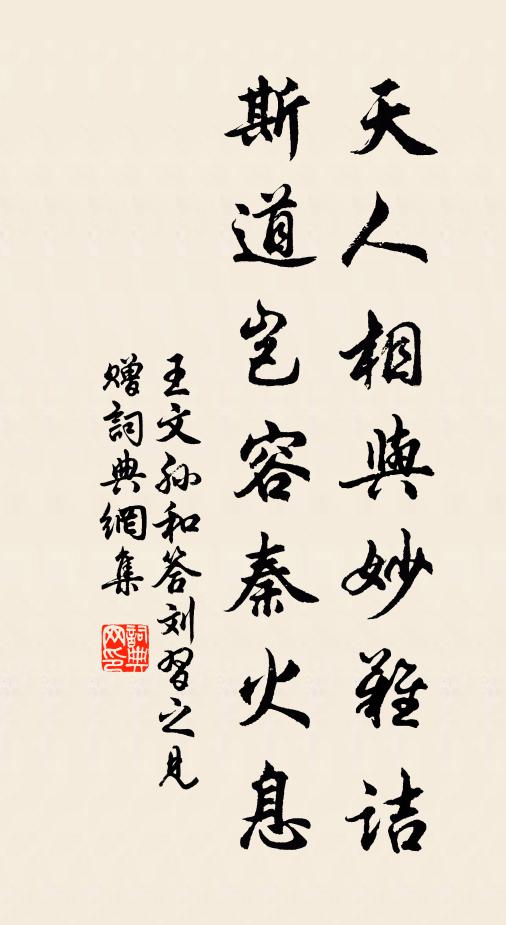 天人相與妙難詰
斯道豈容秦火息
王文孙和答刘習之見
贈詞典網集
詞典
网印